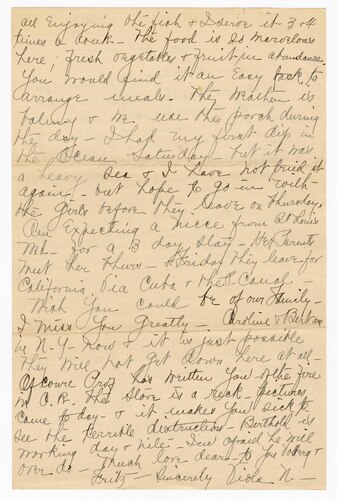 all enjoying the fish & I serve it 3 & 4
times a week - The food is so marvelous
here, fresh vegetables & fruit in abundance.
You would find it an easy task to
arrange meals. The weather is
balmy & we use the porch during
the day - I had my first dip in
the Ocean Saturday - but it was
a heavy sea & I have not tried it
again, but hope to go in with
the girls before they leave on Thursday.
Am expecting a niece from St Louis
Wed. for a 3 day stay - Her Parents
meet her Thurs - & Friday they leave for
California Via Cuba & the P. Canal -
Wish you could be of our Family -
I miss you greatly - Caroline & Bertram
in N.Y. now & it is just possible
they will not get down here at all -
Of course has written you of the fire
in C.R. The store is a reck - pictures
came to day - & it makes you sick to
see the terrible distruction - Berthold is
working day & nite - I'm afraid he will
over do - Much love dear - to you &
Fritz - Sincerely Viola N -